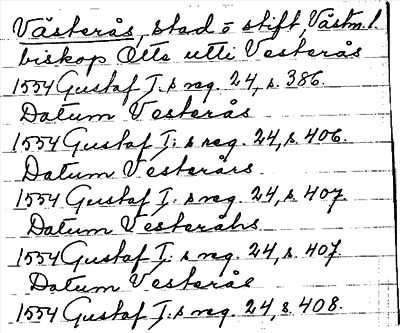 Västerås, stad o stift, Västm. l.
biskop Otte utti Vesterås
1554 Gustaf I:s reg. 24, s. 386.
Datum Vesterås
1554 Gustaf I:s reg. 24, s. 406.
Datum Vesterårs
1554 Gustaf I:s reg. 24, s. 407.
Datum Vesteråhs
1554 Gustaf I:s reg. 24, s. 407.
Datum Vesteråe
1554 Gustaf I:s reg. 24, s. 408.